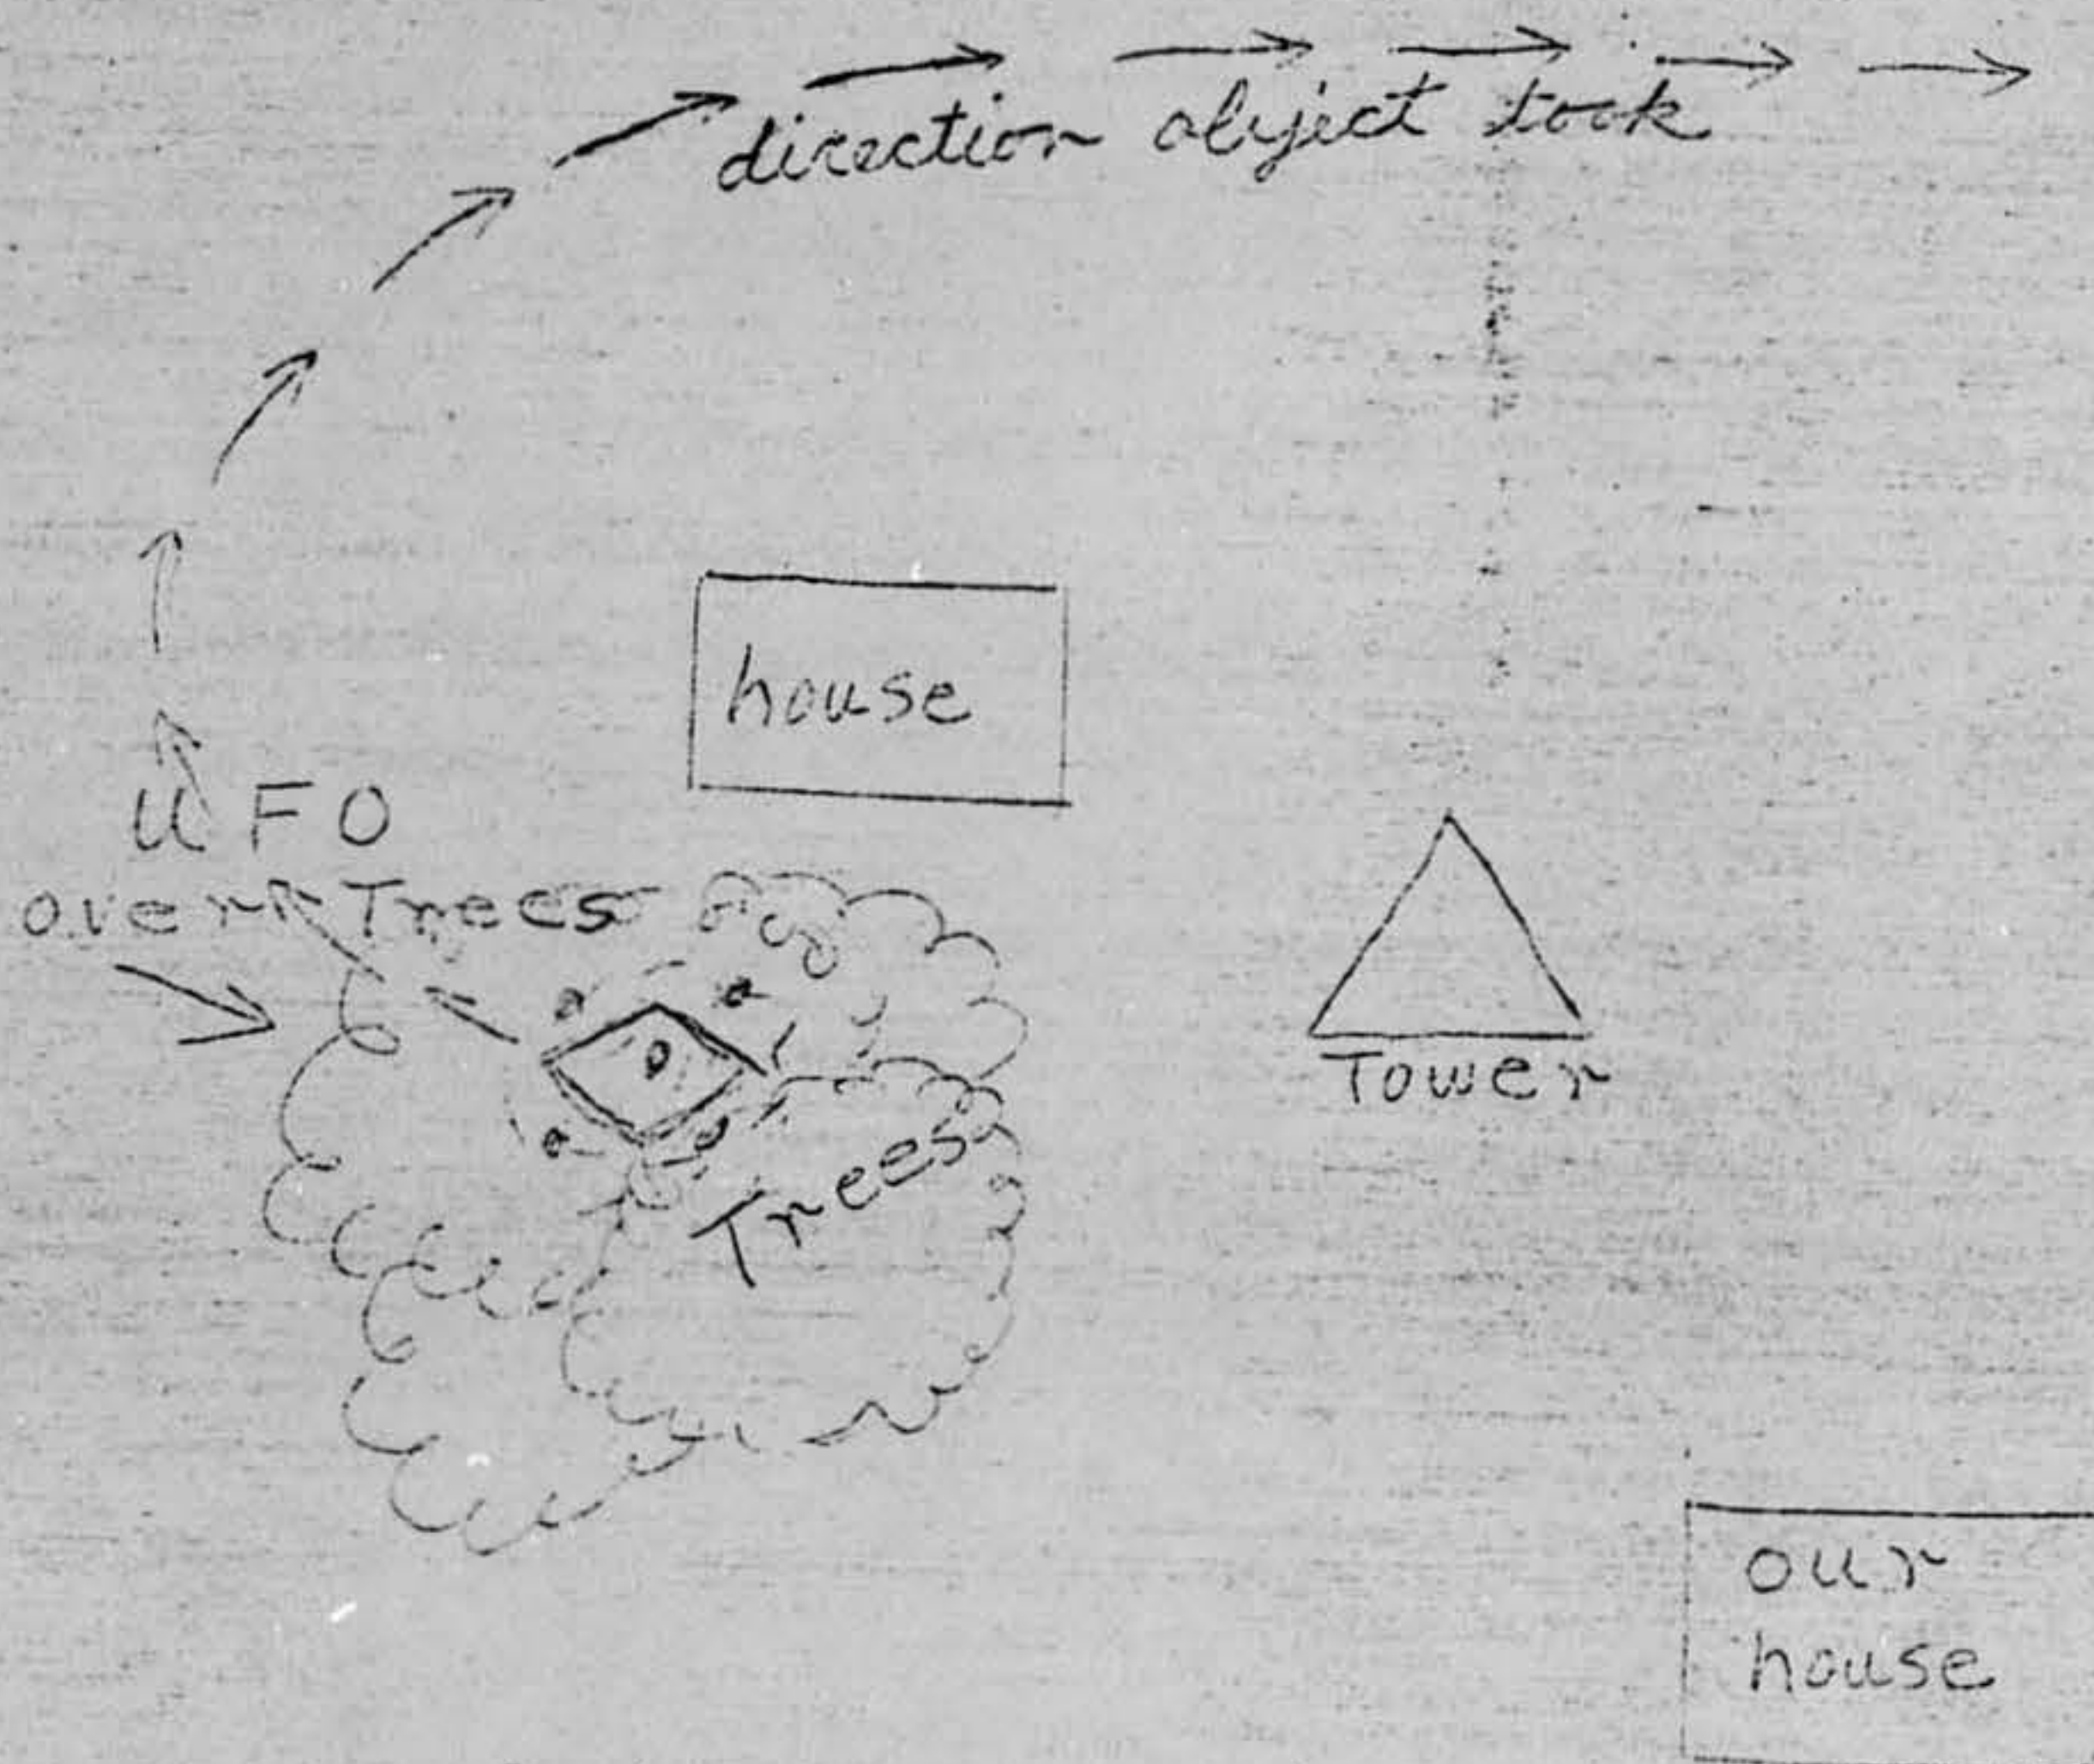 direction object took
house
UFO
over Trees
Tower
Trees
our
house